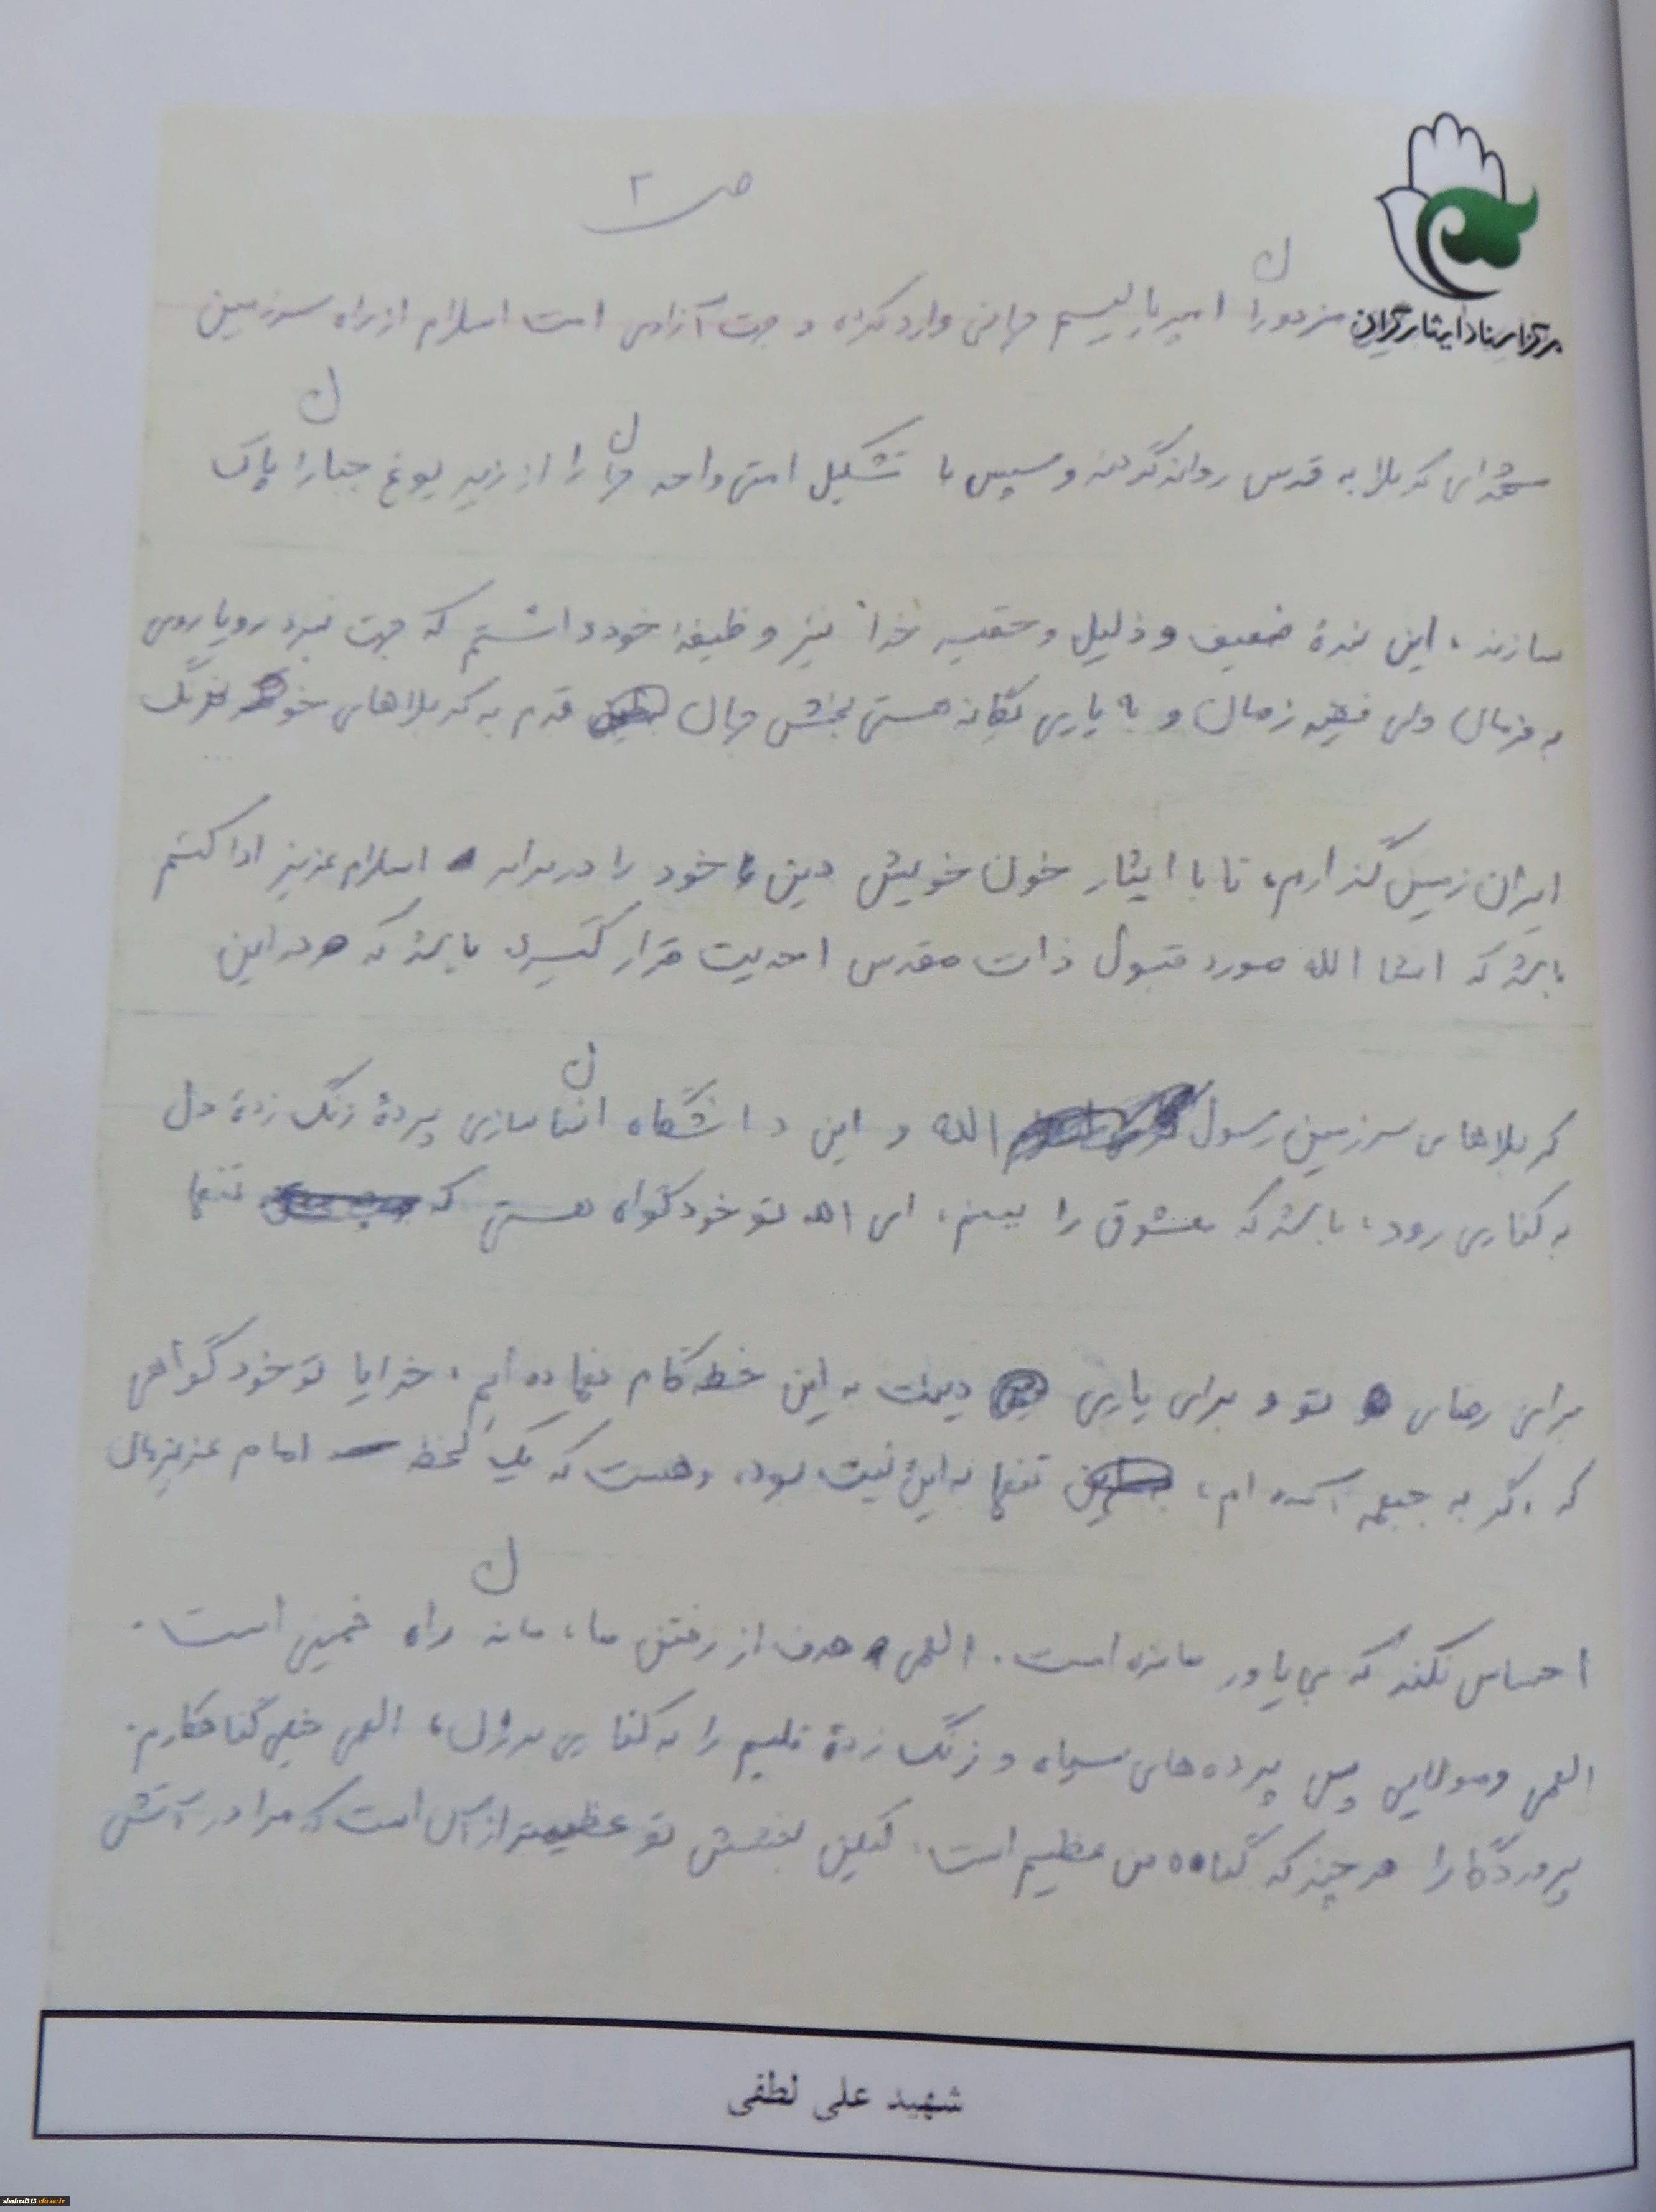 ص ۲
مرکز اسناد ایثارگران
مزدوران امپریالیسم جهانی وارد کرده و جهت آزادی امت اسلام از راه سرزمین
شهدای کربلا به قدس روانه گردند و سپس با تشکیل امتی واحد جهان را از زیر یوغ جباران پاک
سازند، این بندهٔ ضعیف و ذلیل و حقیر خدا نیز وظیفهٔ خود دانستم که جهت نبرد رویاروی
به فرمان ولی فقیه زمان و به یاری یگانه هستی بخش جهان قدم به کربلاهای خونرنگ
ایران زمین گذارم، تا با ایثار خون خویش دین خود را در برابر اسلام عزیز ادا کنم
باشد که انشا الله مورد قبول ذات مقدس احدیت قرار گیرد باشد که در این
کربلاهای سرزمین رسول الله و این دانشگاه انسان سازی پردهٔ زنگ زدهٔ دل
به کناری رود، باشد که معشوق را ببینم، ای الله تو خود گواه هستی که تنها
برای رضای تو و برای یاری دینت به این خطه گام نهاده ایم، خدایا تو خود گواهی
که اگر به جبهه آمده ام، تنها به این نیت بوده و هست که یک لحظه امام عزیزمان
احساس نکند که بی یاور مانده است. الهی هدف از رفتن ما، ماندن راه خمینی است.
الهی و مولایی پس پرده های سیاه و زنگ زدهٔ قلبم را به کناری بزن، الهی خیلی گناهکارم.
پروردگارا هر چند که گناه من عظیم است. لیکن بخشش تو عظیمتر از آن است که مرا در آتش
شهید علی لطفی
shahed313.cfu.ac.ir